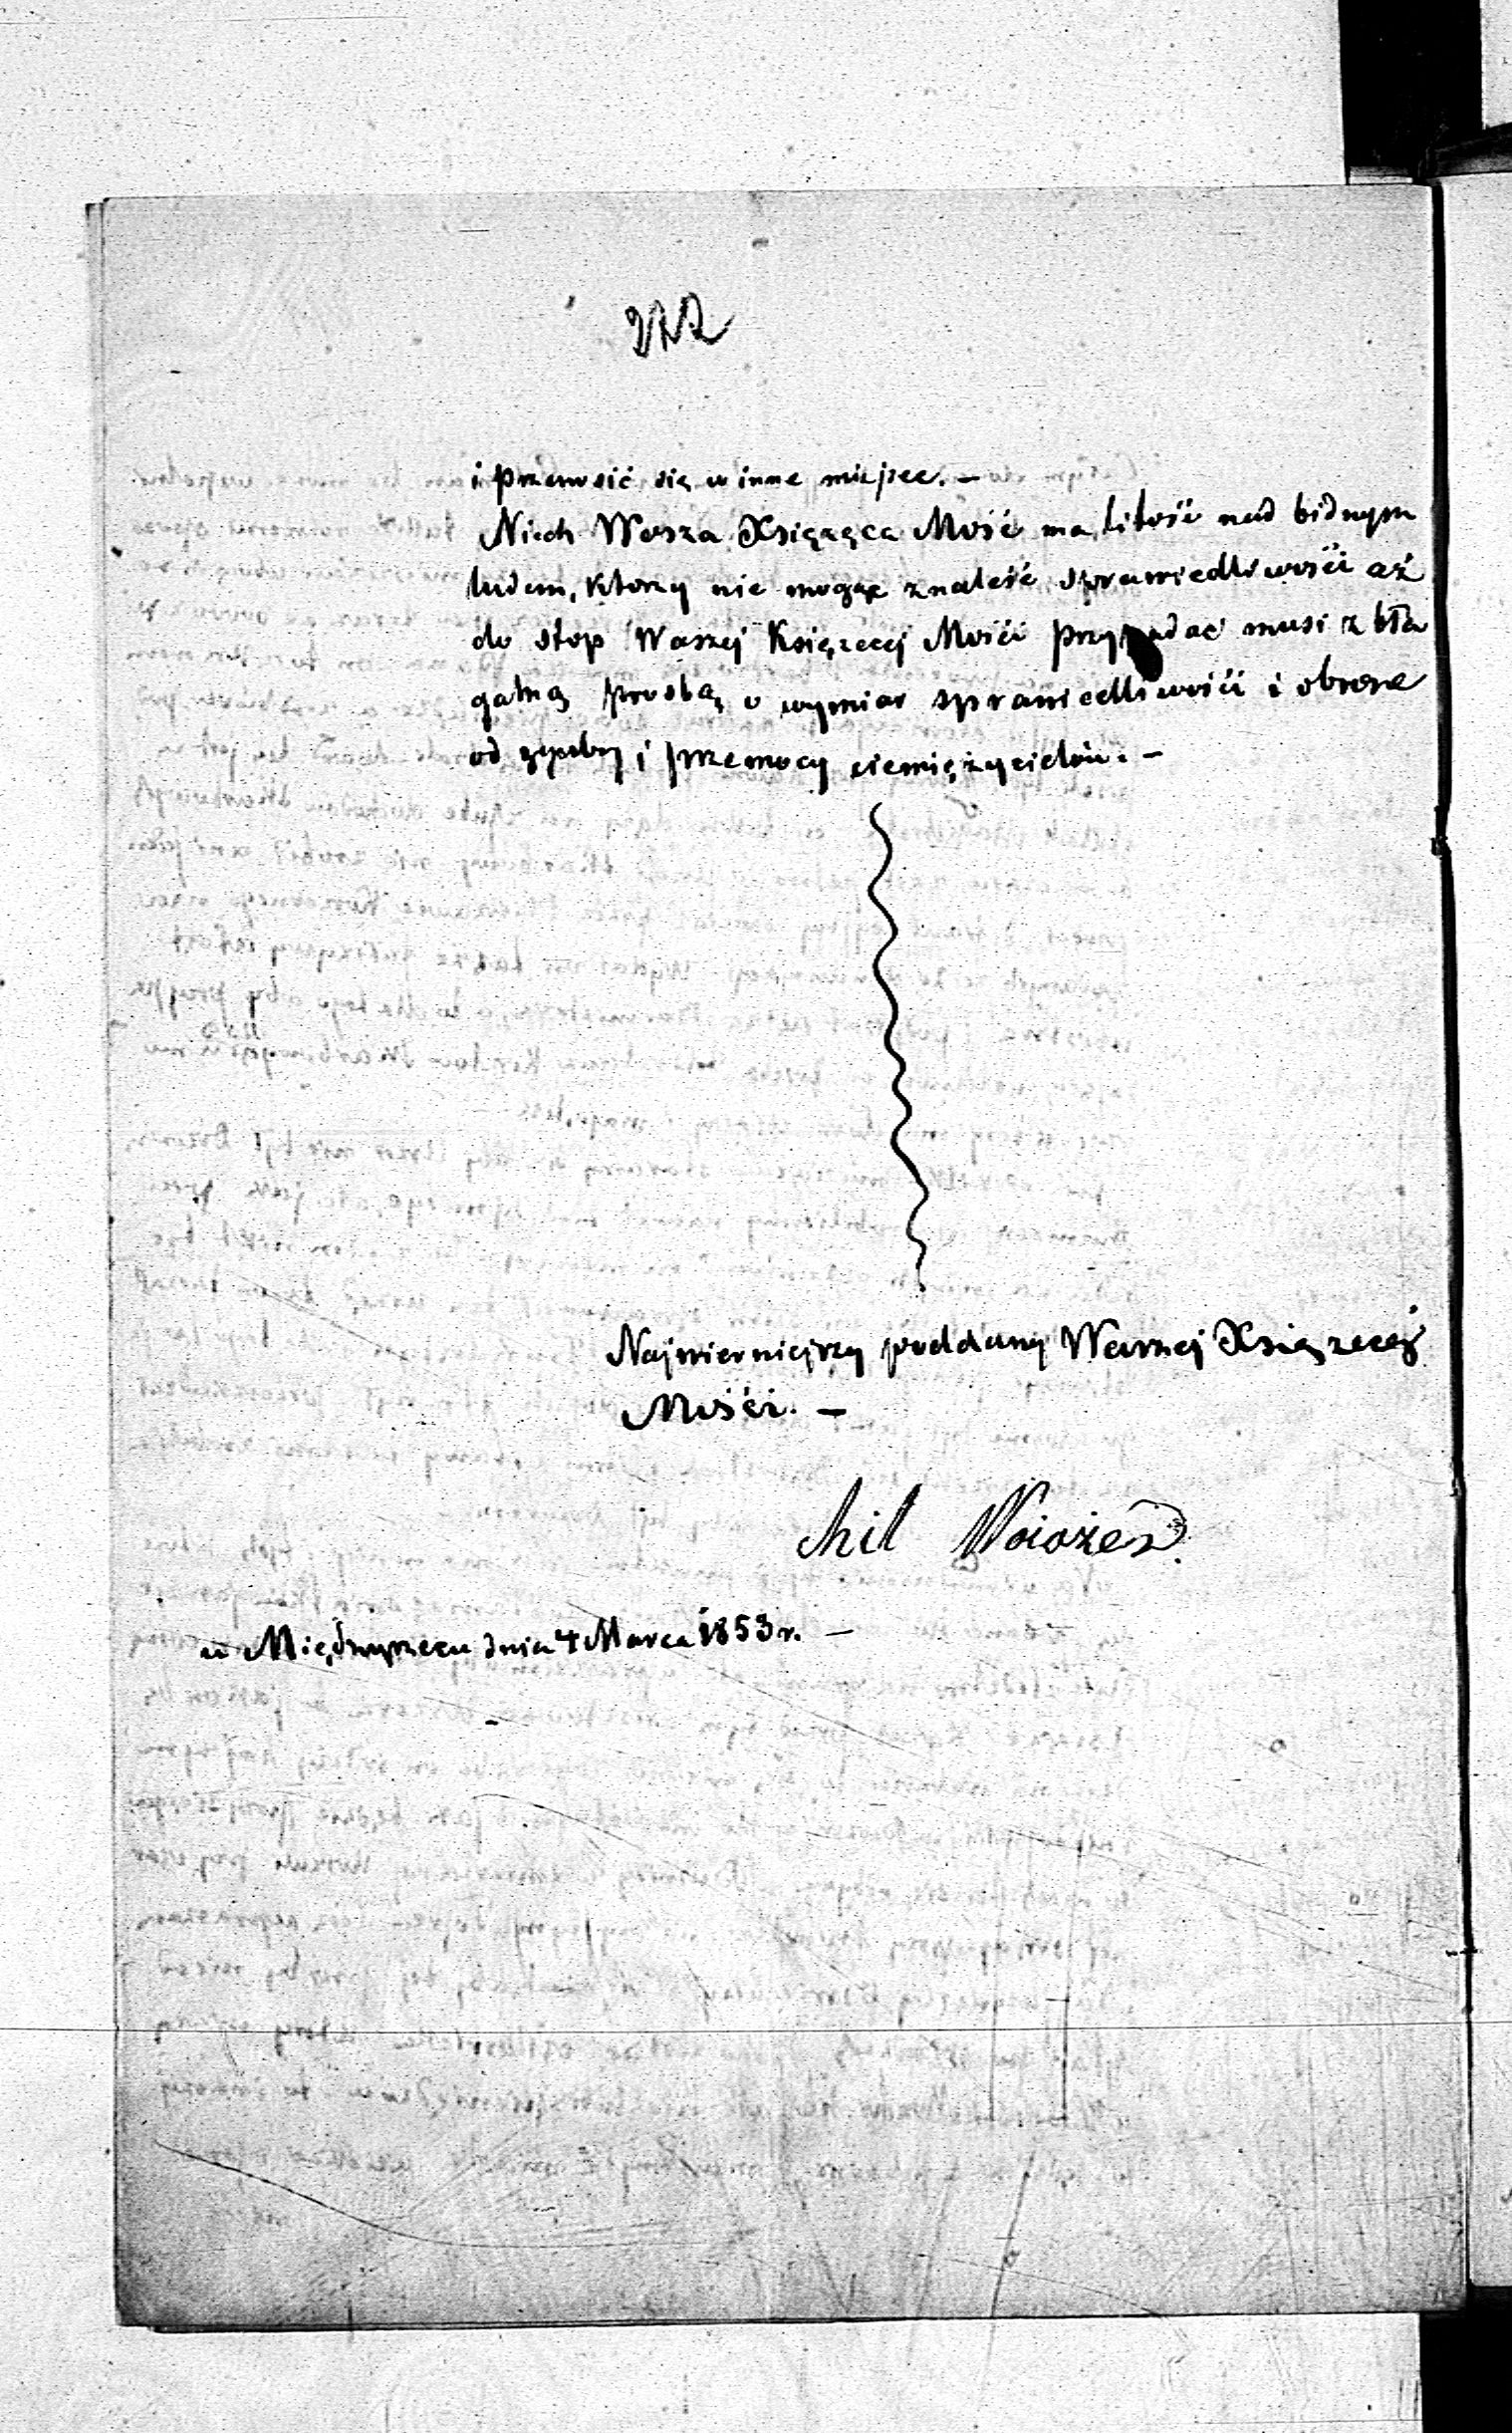 272
i przenieść się w inne miejsce. —
Niech Wasza Xsiążęca Mość ma litość nad bidnym
ludem, ktory nie mogąc znaleść sprawiedliwości aż
do stop Waszej Książecej Mości przypadać musi z bła
galną prosbą o wymiar sprawiedliwości i obrone
od zguby i przemocy ciemiężycielów. —
Najwierniejszy poddany Waszej Xsiążecej
Mości. —
Chil
w Międzyrzecu dnia 4 Marca 1853 r. —